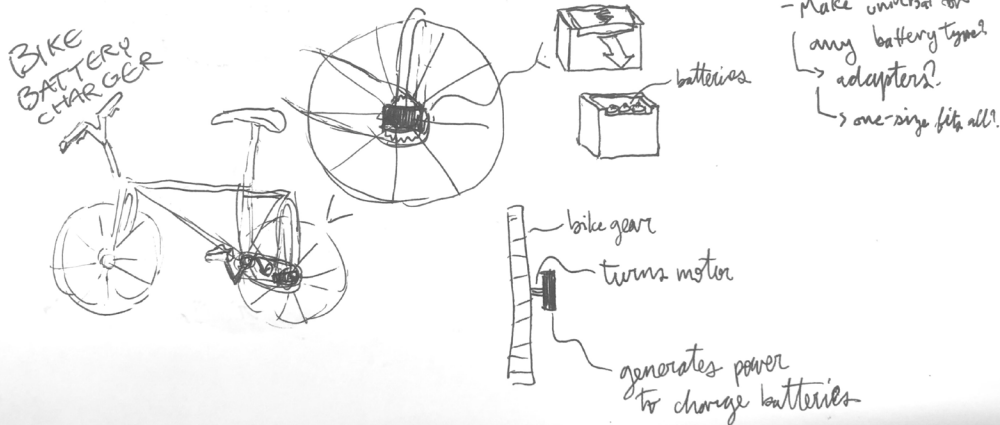 BIKE
BATTERY
CHARGER
batteries
- Make universal for
any battery type?
adapters?
one-size fits all?
bike gear
turns motor
generates power
to charge batteries